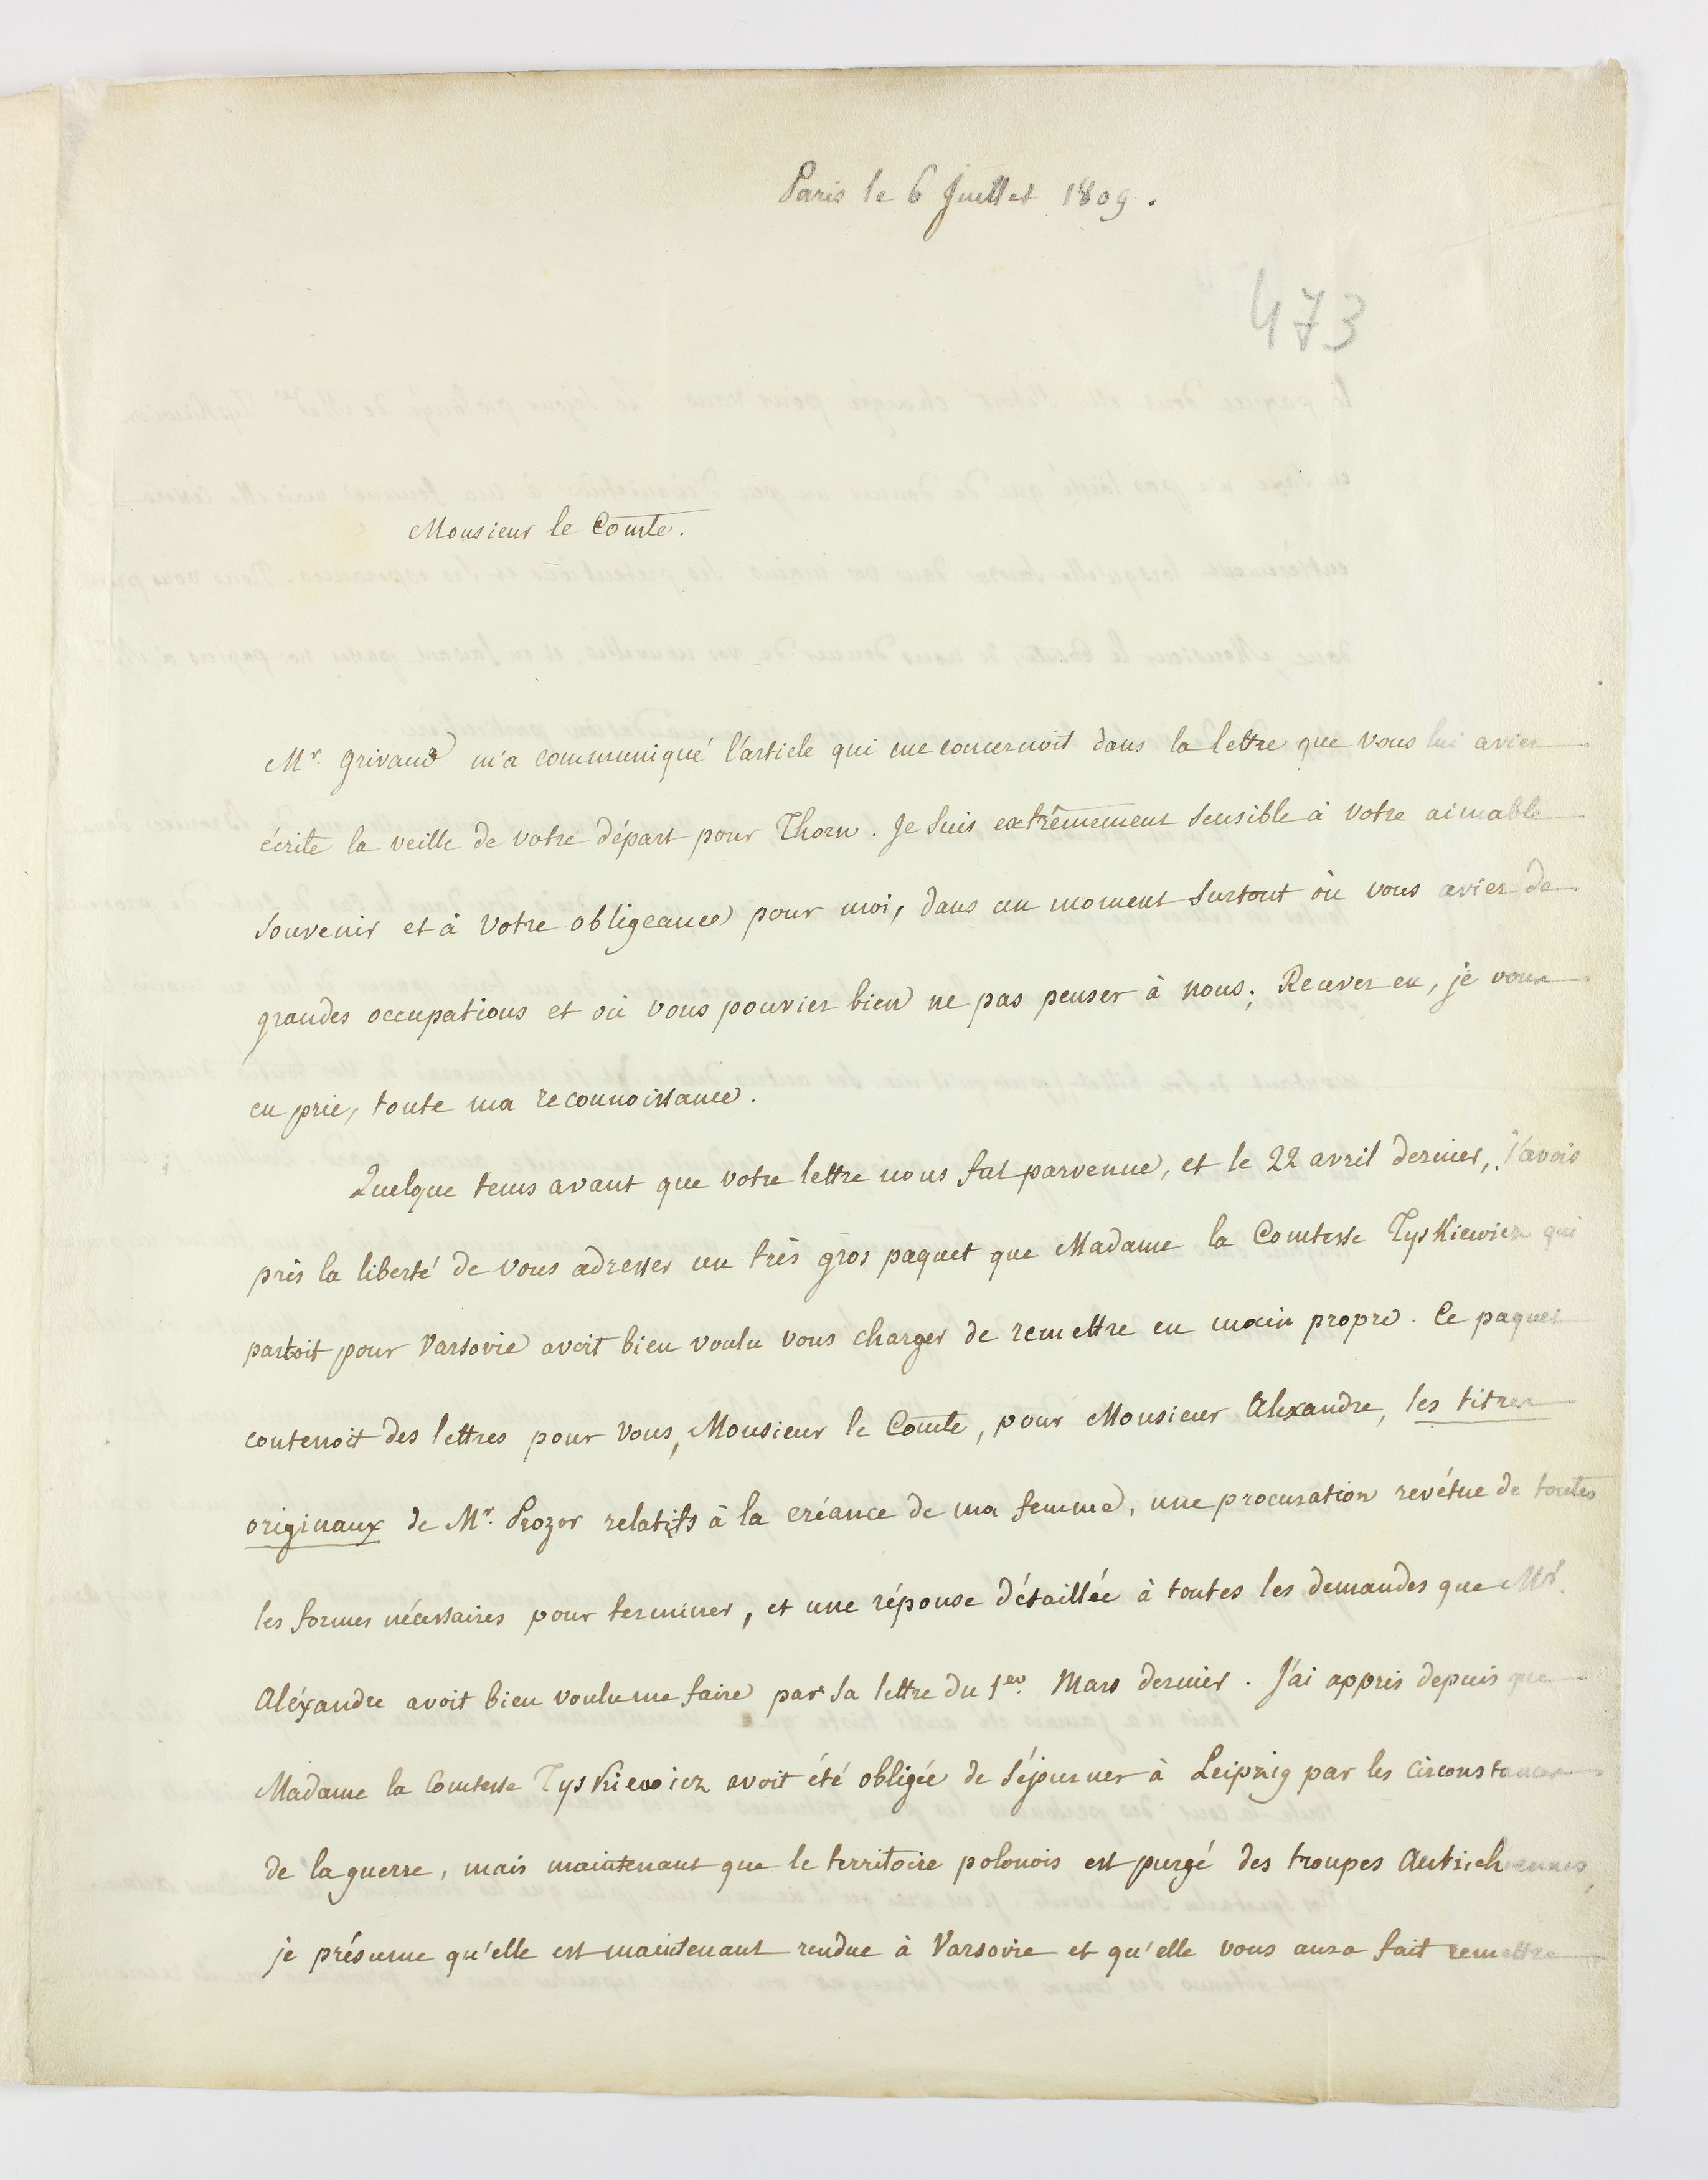 Paris le 6 Juillet 1809.
473
Monsieur le Comte.
Mr. Grivaud m'a communiqué l'article qui me concernoit dans la lettre que vous lui aviez
écrite la veille de votre départ pour Thorn. Je suis extrêmement sensible à votre aimable
souvenir et à votre obligeance pour moi, dans un moment surtout où vous aviez de
grandes occupations et où vous pouviez bien ne pas penser à nous; Recevez en, je vous
en prie, toute ma reconnoissance.
Quelque tems avant que votre lettre nous fut parvenue, et le 22 avril dernier, j'avois
pris la liberté de vous adresser un très gros paquet que Madame la Comtesse Tyskiewicz qui
partoit pour Varsovie avoit bien voulu vous charger de remettre en main propre. Ce paquet
contenoit des lettres pour vous, Monsieur le Comte, pour Monsieur Alexandre, les titres
originaux de Mr. Prozor relatifs à la créance de ma femme, une procuration revétue de toutes
les formes nécessaires pour terminer, et une réponse détaillée à toutes les demandes que Mr.
Aléxandre avoit bien voulu me faire par sa lettre du 1er. Mars dernier. J'ai appris depuis que
Madame la Comtesse Tyskiewicz avoit été obligée de séjourner à Leipzig par les circonstances
de la guerre, mais maintenant que le territoire polonois est purgé des troupes Autrichiennes,
je présume qu'elle est maintenant rendue à Varsovie et qu'elle vous aura fait remettre